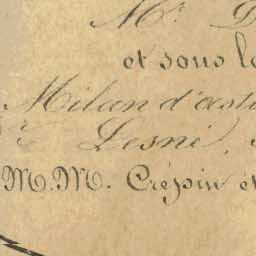 Mr. D
et sous le
Milan d'asti
Lesni,
M.M. Crépin et